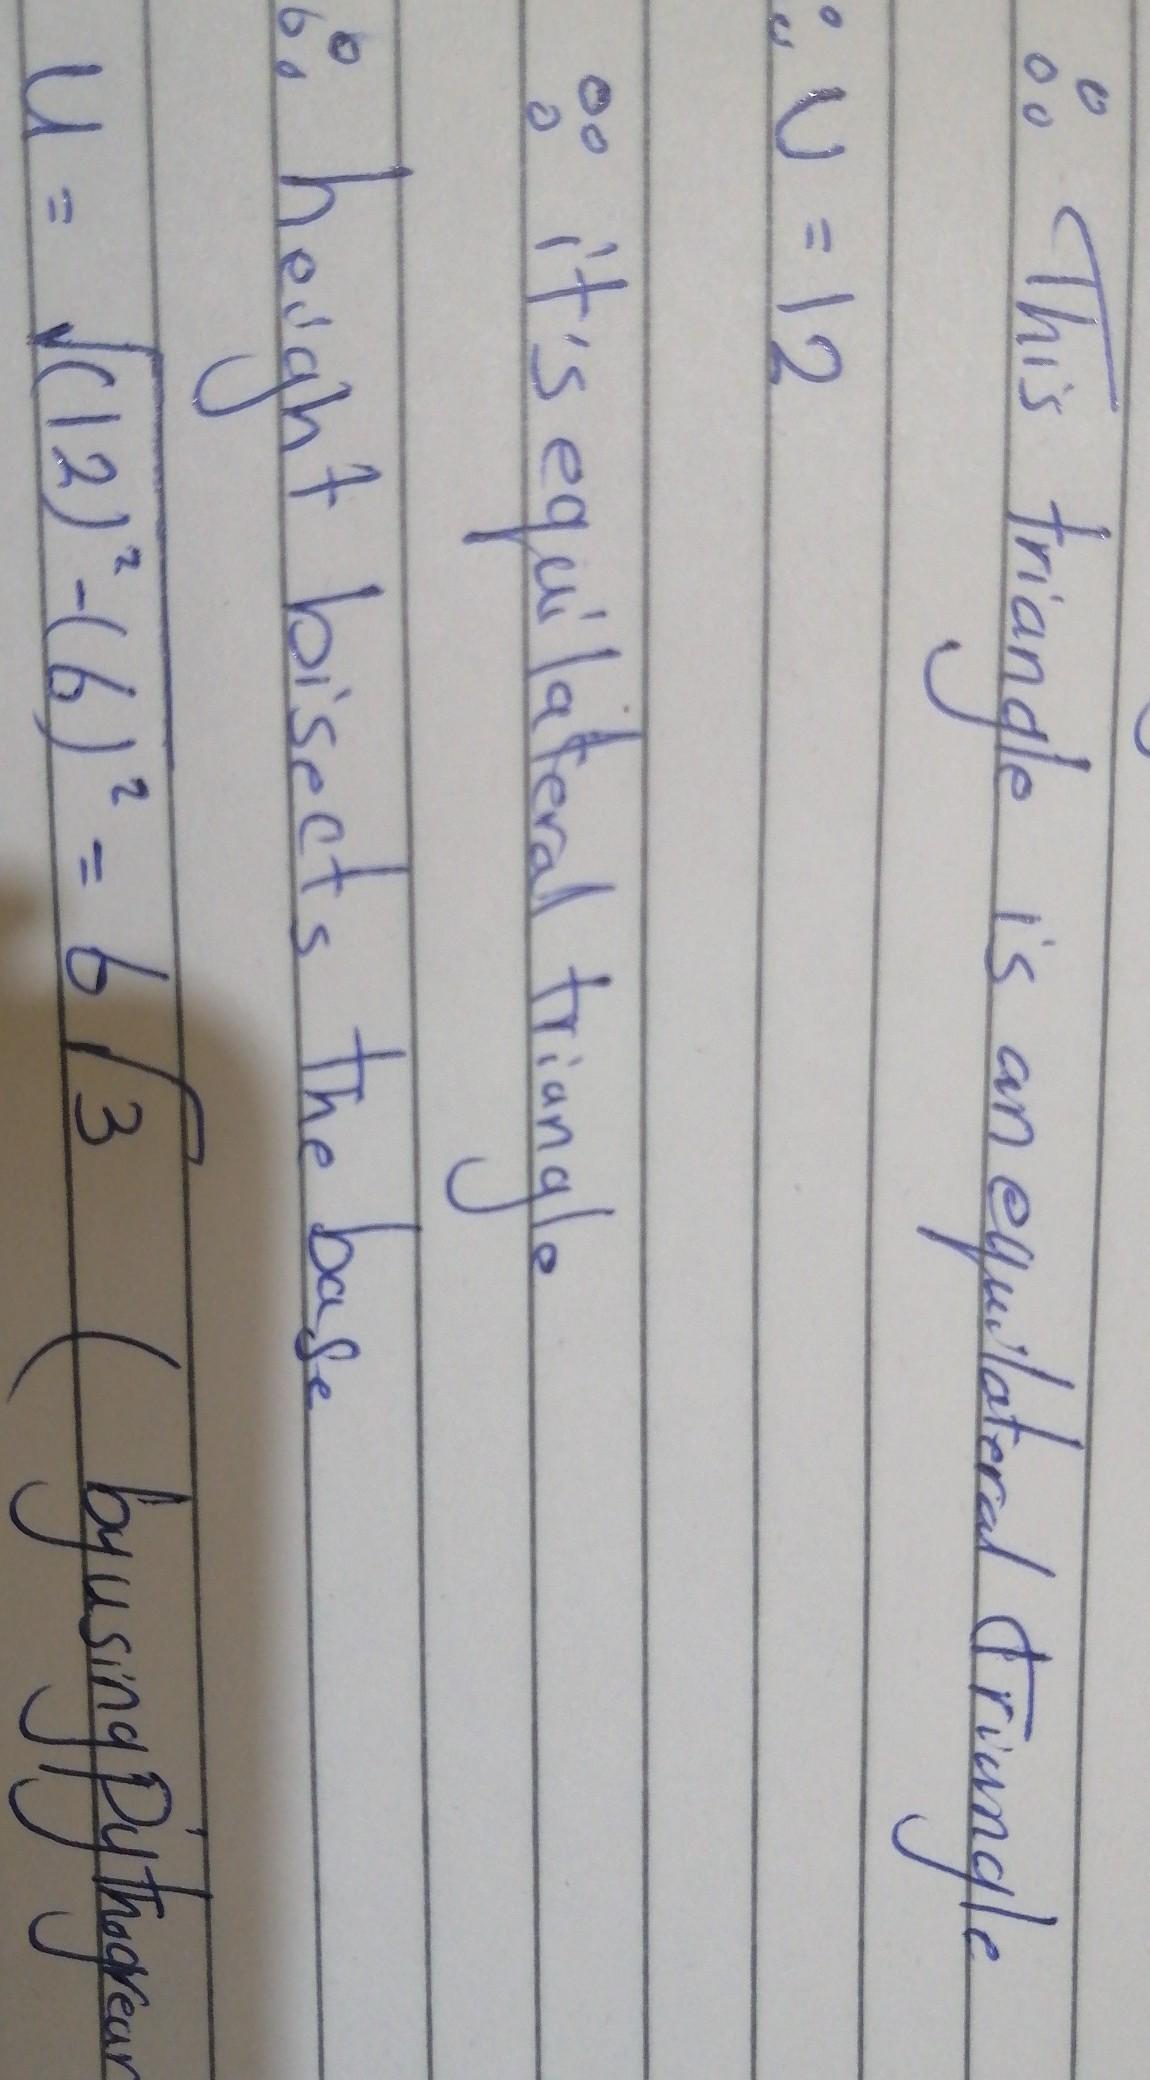 ∴ This triangle is an equilateral triangle
∴ V = 12
∵ it's equilateral triangle
∴ height bisects the base
U = √(12)² - (6)² = 6√3 ( by using Pythagrean